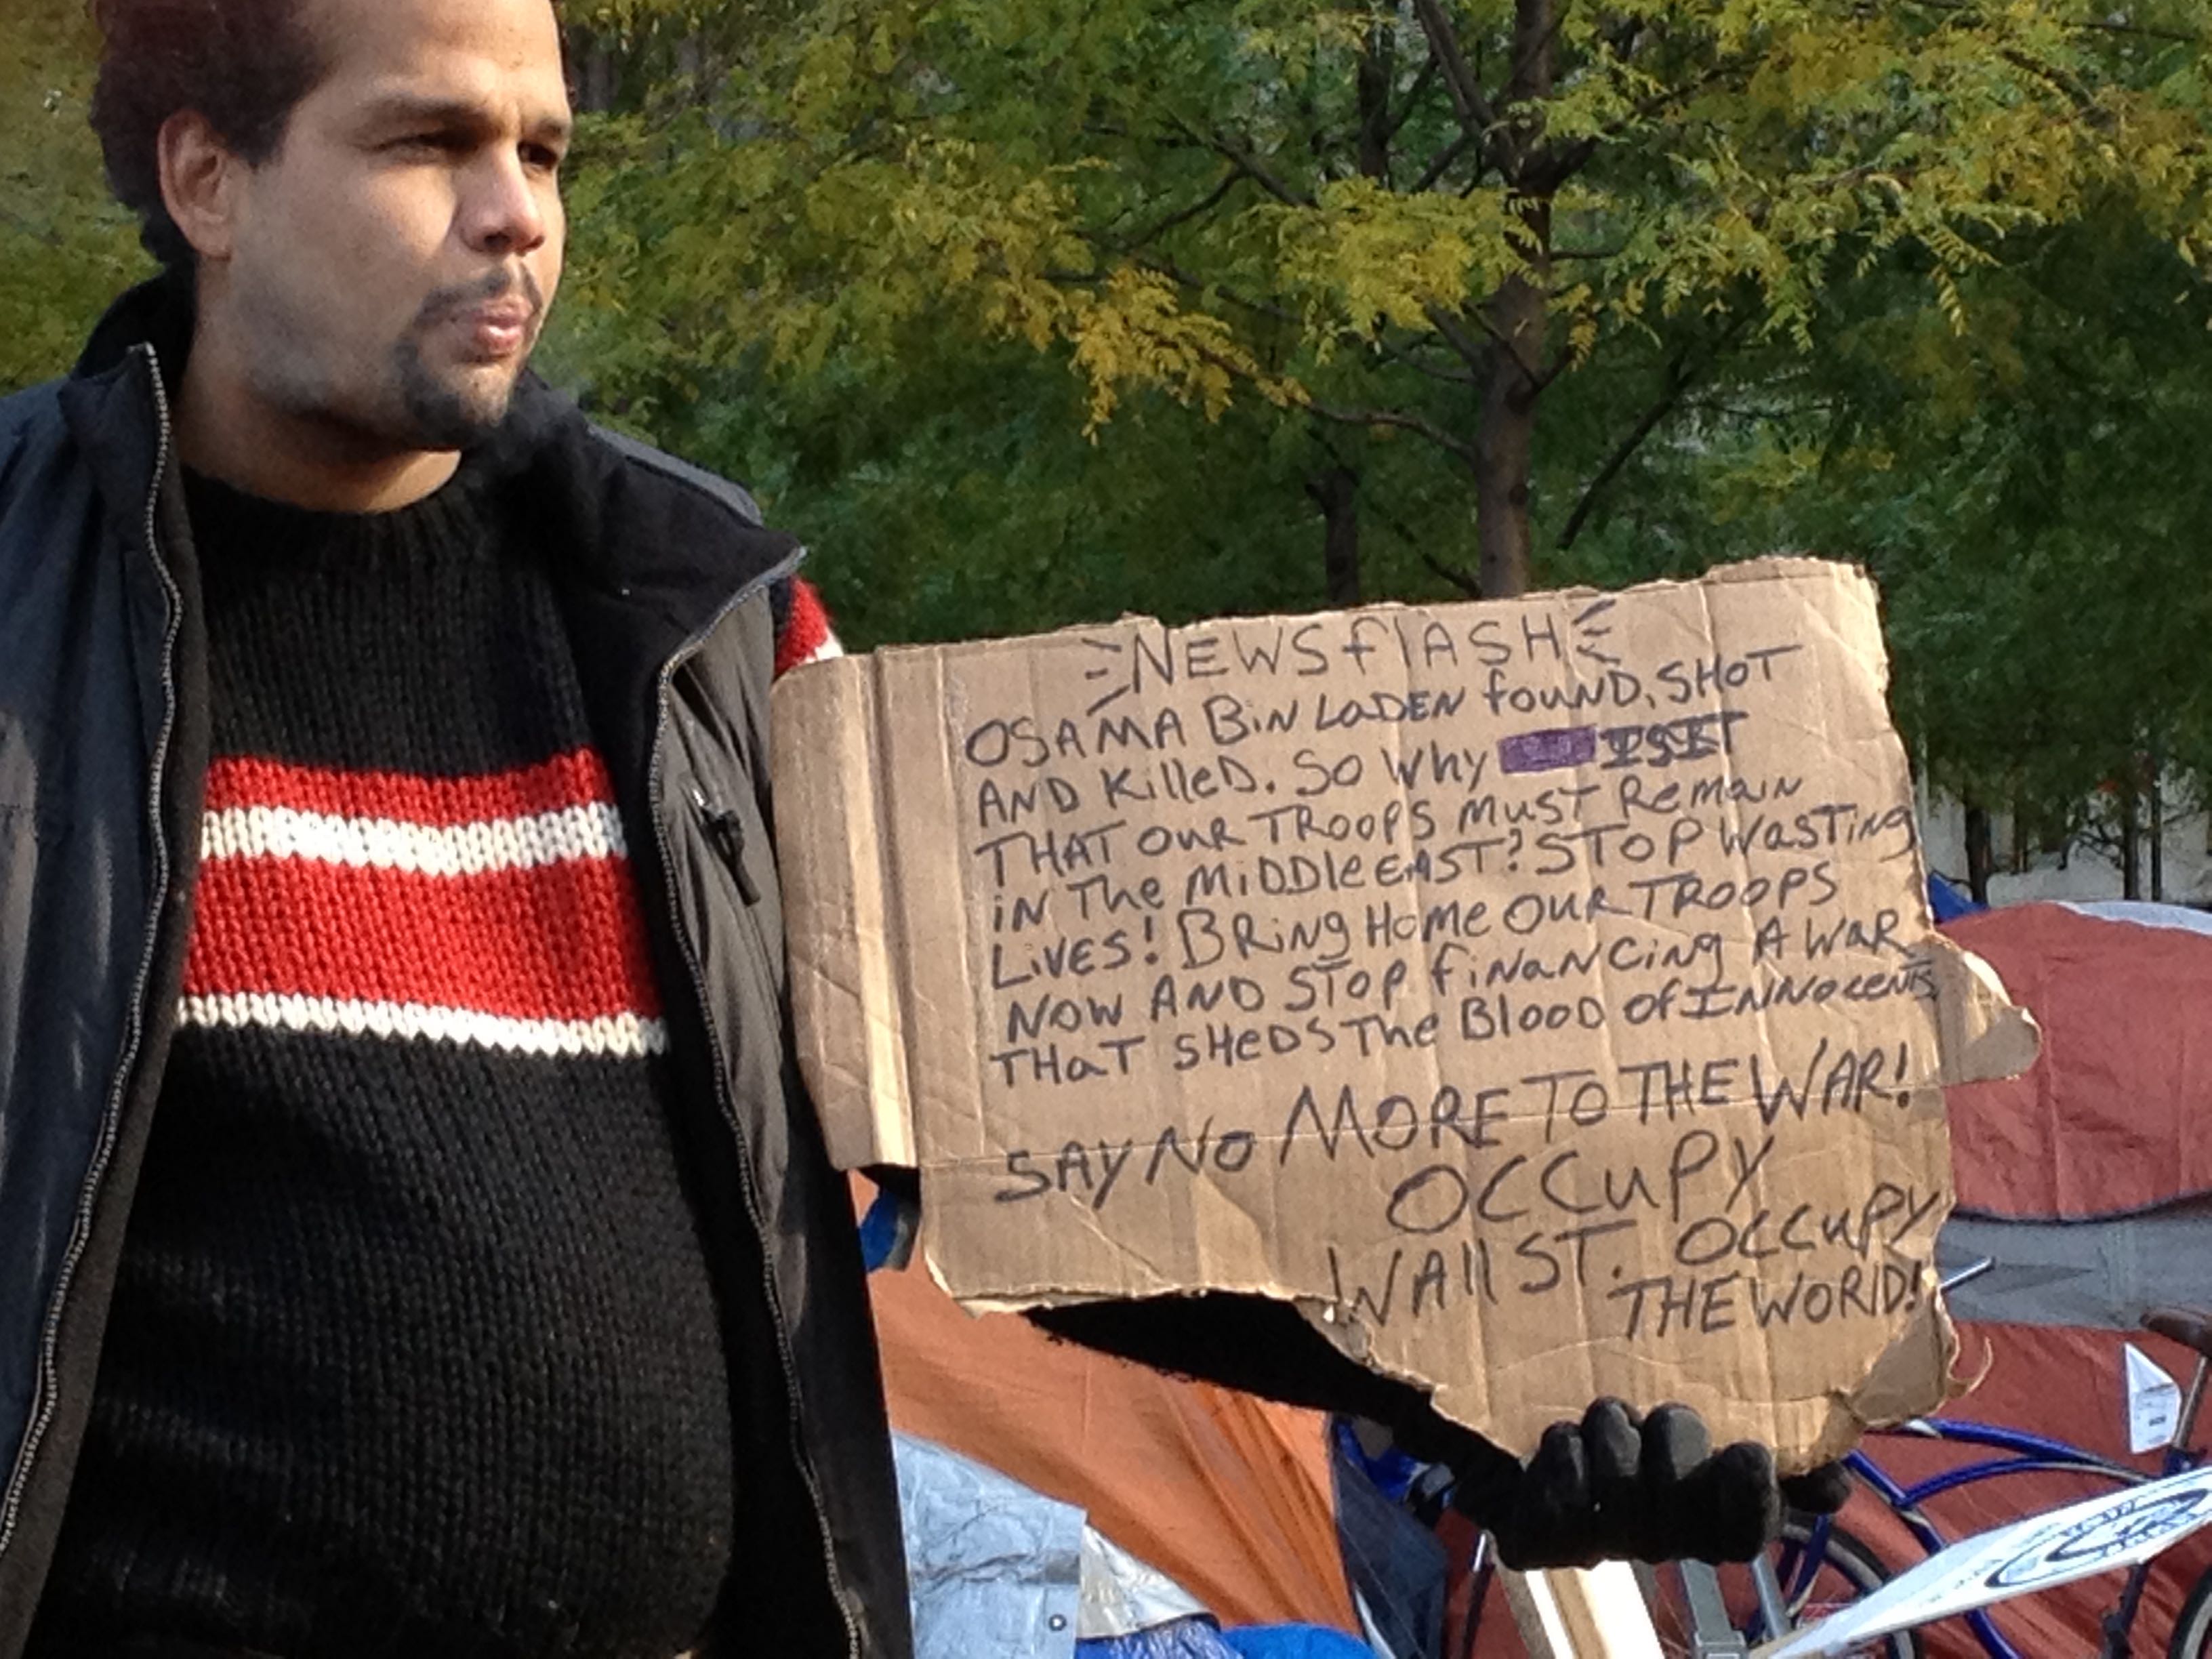 NEWSflASH
OSAMA BiN LaDEN fouND, SHOT
AND KilleD. So Why ISIT
THAT OUR TROOPS MusT Remain
iN The MiDDle EAST? STOP WasTing
LiVES! BRiNg Home OUR TROOPS
NOW AND STOP fiNaNCing A WaR
THaT SHeDS The Blood of INNocents
SAY NO MORE TO THE WAR!
OCCuPY
WAll ST. OCCuPY
THE WORlD!